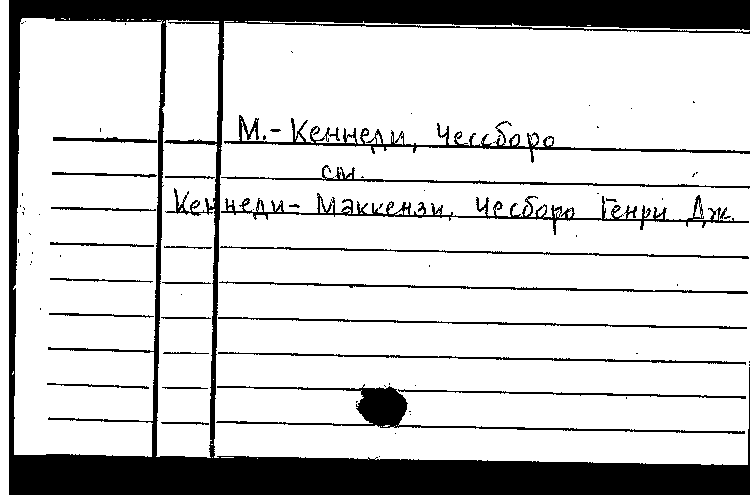 М.- Кеннеди, Чессборо
см.
Кеннеди- Маккензи, Чесборо Генри Дж.